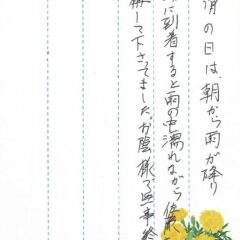 の日は、朝から雨が降り
に到着すると雨の中濡れながら
して下さってました。お陰様で無事終